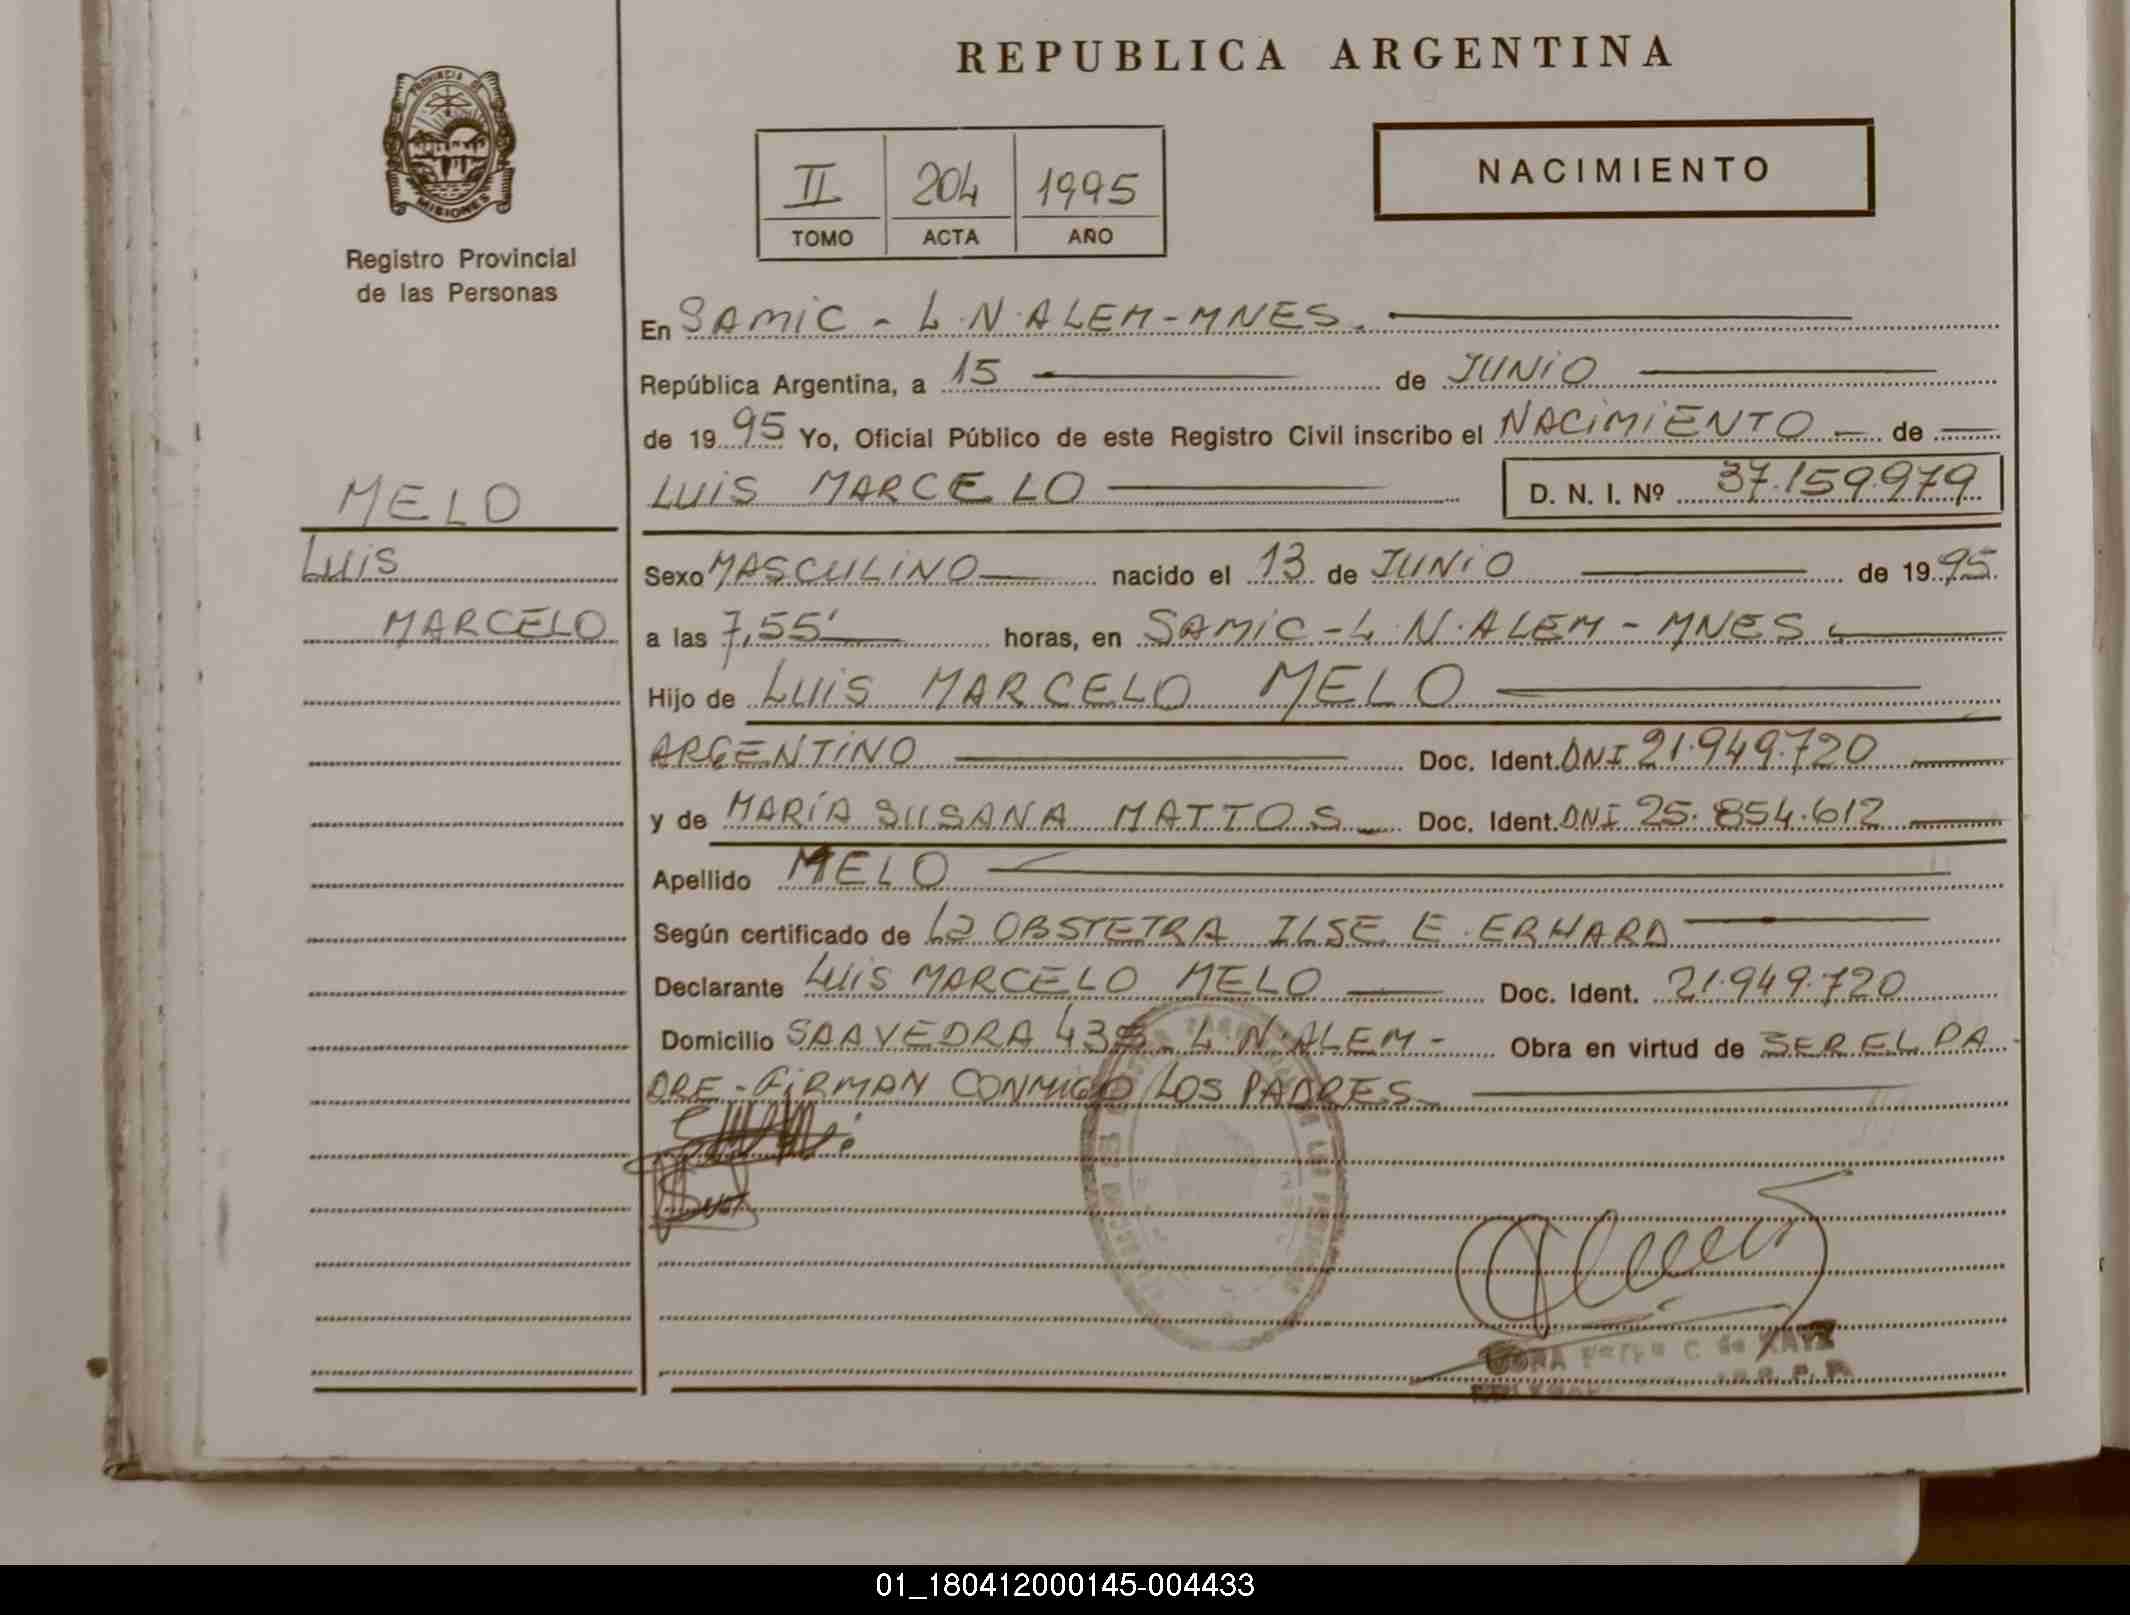 REPUBLICA ARGENTINA
PROVINCIA DE
MISIONES
Registro Provincial
de las Personas
II 204 1995
TOMO ACTA AÑO
NACIMIENTO
En SAMIC - L.N.ALEM-MNES.
República Argentina, a 15 de JUNIO
de 1995 Yo, Oficial Público de este Registro Civil inscribo el NACIMIENTO de
MELO
LUIS MARCELO D. N. I. Nº 37.159.979
LUIS
Sexo MASCULINO nacido el 13 de JUNIO de 1995.
MARCELO
a las 7,55' horas, en SAMIC - L.N.ALEM - MNES
Hijo de LUIS MARCELO MELO
ARGENTINO Doc. Ident. DNI 21.949.720
y de MARÍA SUSANA MATTOS Doc. Ident. DNI 25.854.612
Apellido MELO
Según certificado de La OBSTETRA ILSE E. ERHARD
Declarante LUIS MARCELO MELO Doc. Ident. 21.949.720
Domicilio SAAVEDRA L.N.ALEM - Obra en virtud de SER EL PA-
DRE - FIRMAN CONMIGO LOS PADRES
01_180412000145-004433